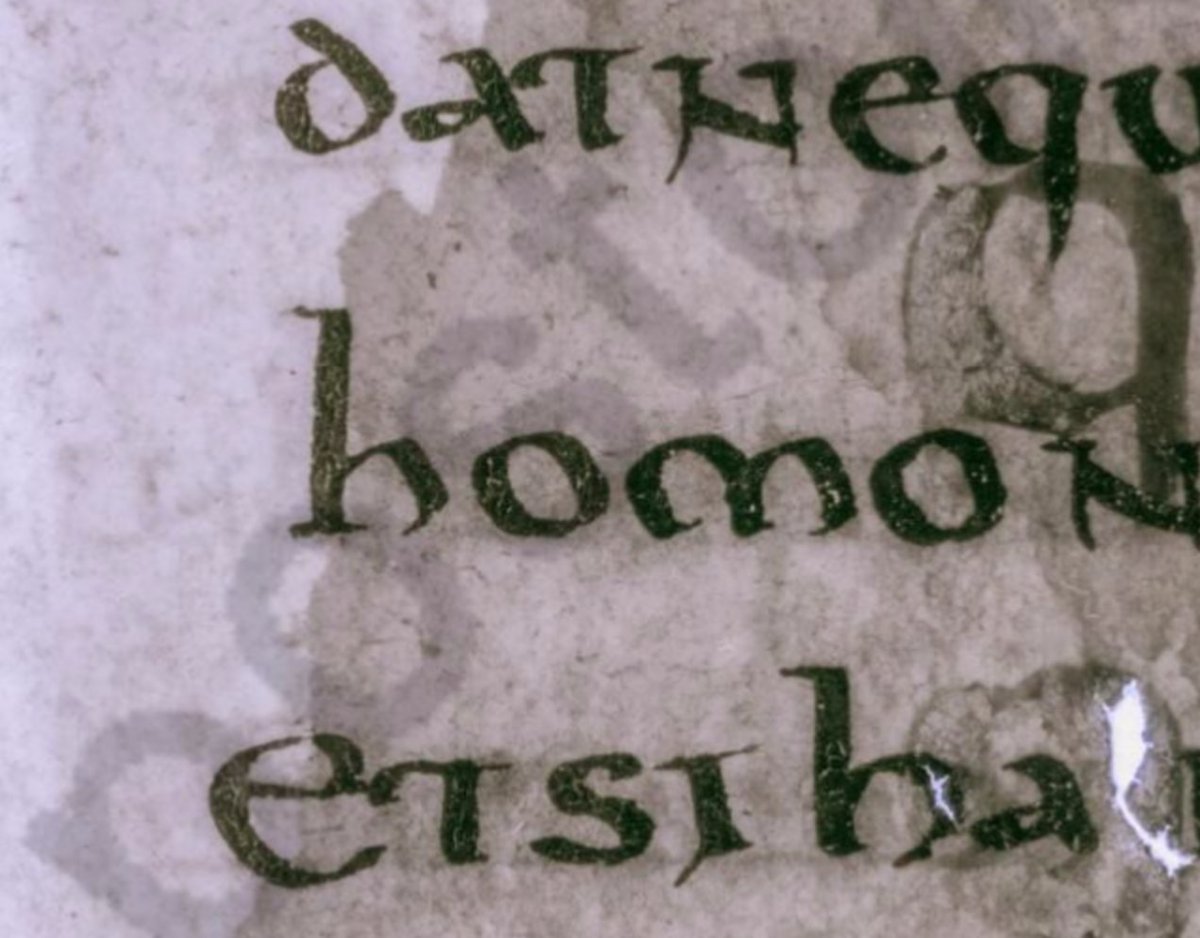 datnequ
homon
etsiha